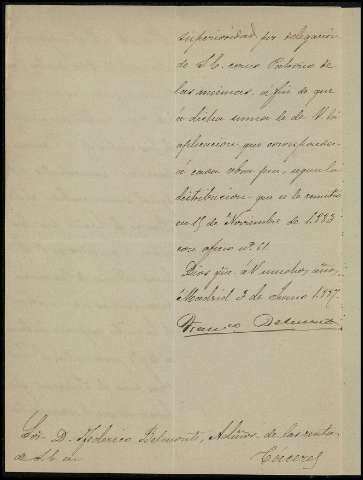 superioridad, por delegación
de S. E. como Patrono de
las mismas, a fin de que
á dicha suma le dé V. la
aplicacion que corresponde
á cada obra pia, segun la
distribucion que se le remitió
en 15 de Noviembre de 1.883
con oficio nº 61
Dios gue. á V. muchos años,
Madrid 3 de Junio 1.887.
Sor. D. Federico Belmonte, Admor. de las rentas
de S. E. en Cáceres